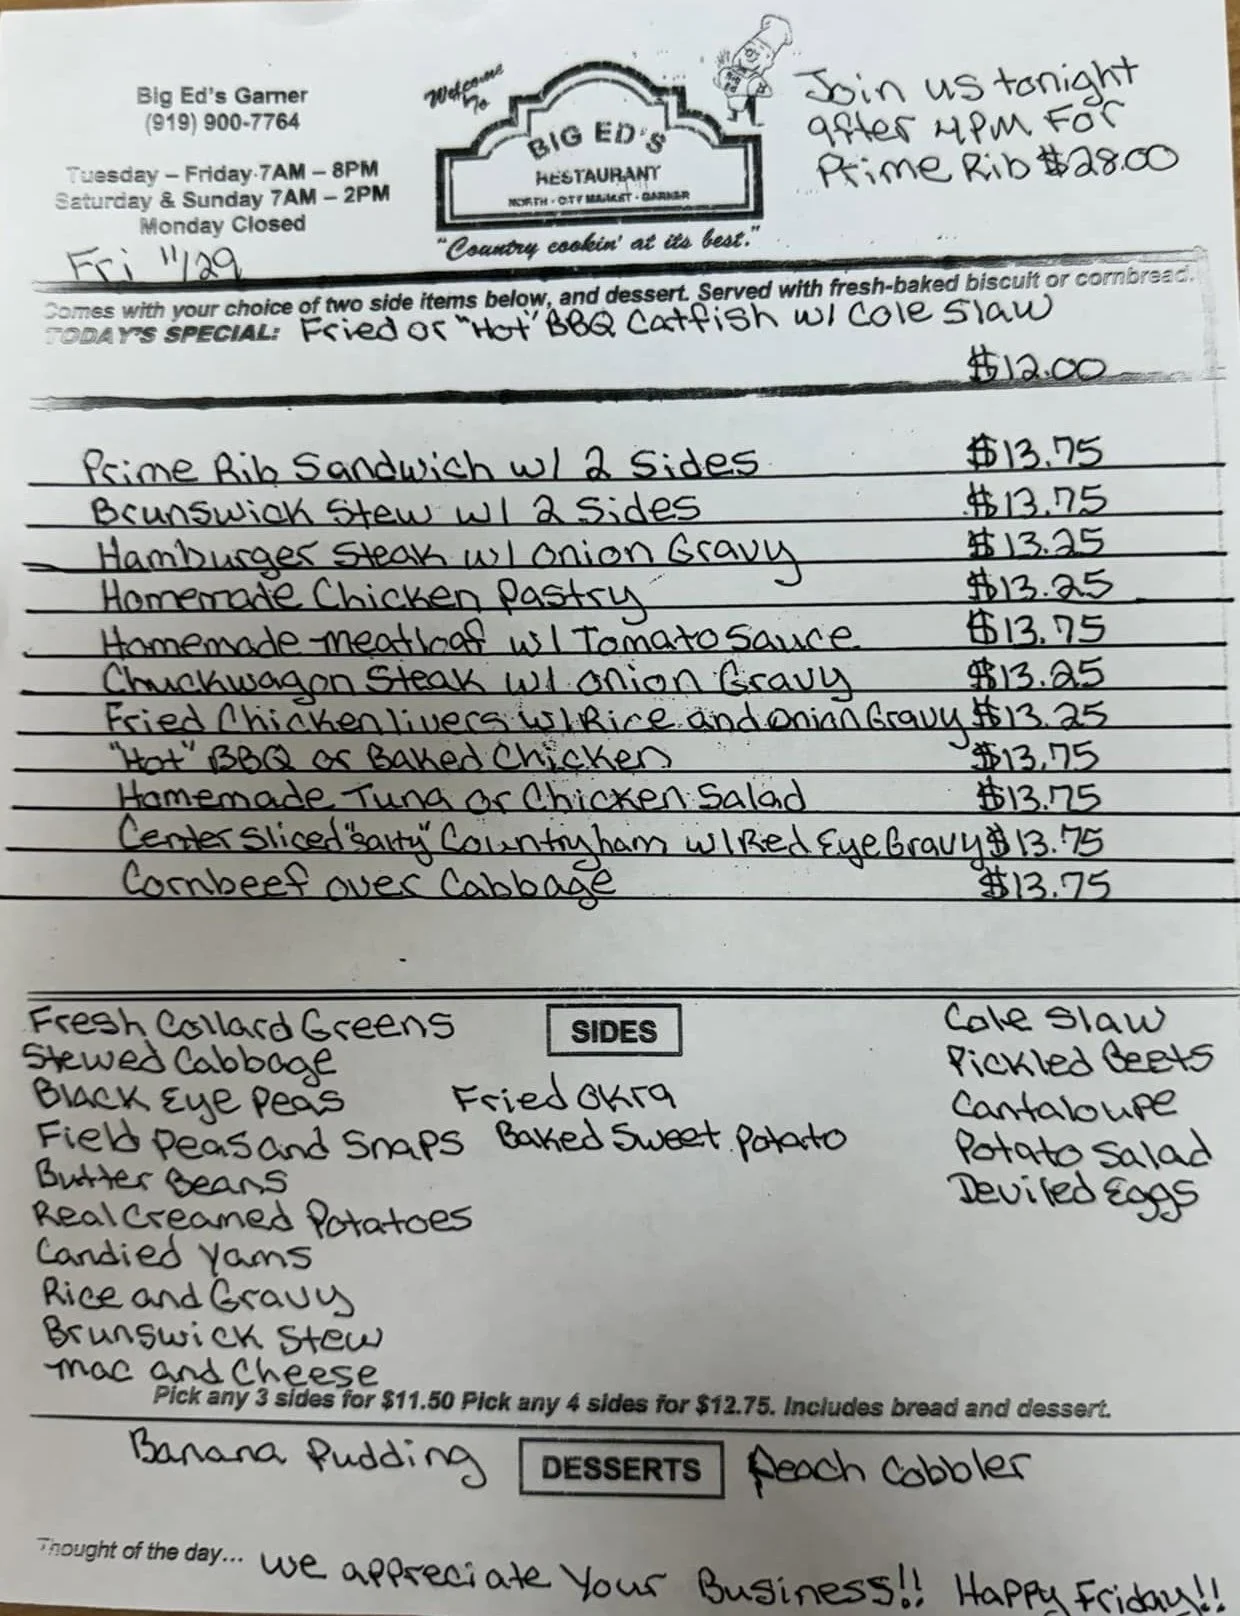 Big Ed's Garner
(919) 900-7764
Tuesday – Friday 7AM – 8PM
Saturday & Sunday 7AM – 2PM
Monday Closed
Fri 11/29
Welcome
To
BIG ED'S
RESTAURANT
NORTH - CITY MARKET - GARNER
"Country cookin' at its best."
Join us tonight
after 4PM For
Prime Rib $28.00
Comes with your choice of two side items below, and dessert. Served with fresh-baked biscuit or cornbread.
TODAY'S SPECIAL: Fried or "Hot" BBQ Catfish w/ Cole Slaw
$12.00
Prime Rib Sandwich w/ 2 Sides $13.75
Brunswick Stew w/ 2 Sides $13.75
Hamburger Steak w/ Onion Gravy $13.25
Homemade Chicken Pastry $13.25
Homemade meatloaf w/ Tomato Sauce $13.75
Chuckwagon Steak w/ onion Gravy $13.25
Fried Chicken livers w/ Rice and Onion Gravy $13.25
"Hot" BBQ or Baked Chicken $13.75
Homemade Tuna or Chicken Salad $13.75
Center Sliced "Salty" Country ham w/ Red Eye Gravy $13.75
Cornbeef over Cabbage $13.75
SIDES
Fresh Collard Greens
Stewed Cabbage
Black Eye Peas
Field Peas and Snaps
Butter Beans
Real Creamed Potatoes
Candied Yams
Rice and Gravy
Brunswick Stew
Mac and Cheese
Fried Okra
Baked Sweet Potato
Cole Slaw
Pickled Beets
Cantaloupe
Potato Salad
Deviled Eggs
Pick any 3 sides for $11.50 Pick any 4 sides for $12.75. Includes bread and dessert.
Banana Pudding DESSERTS Peach Cobbler
Thought of the day... We appreciate Your Business!! Happy Friday!!